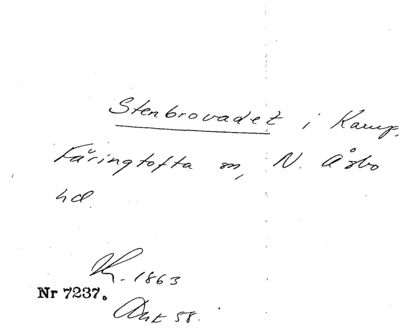 Stenbrovadet i Kamp,
Färingtofta sn, N. Åsbo
hd.
1863
Nr 7237.
58.